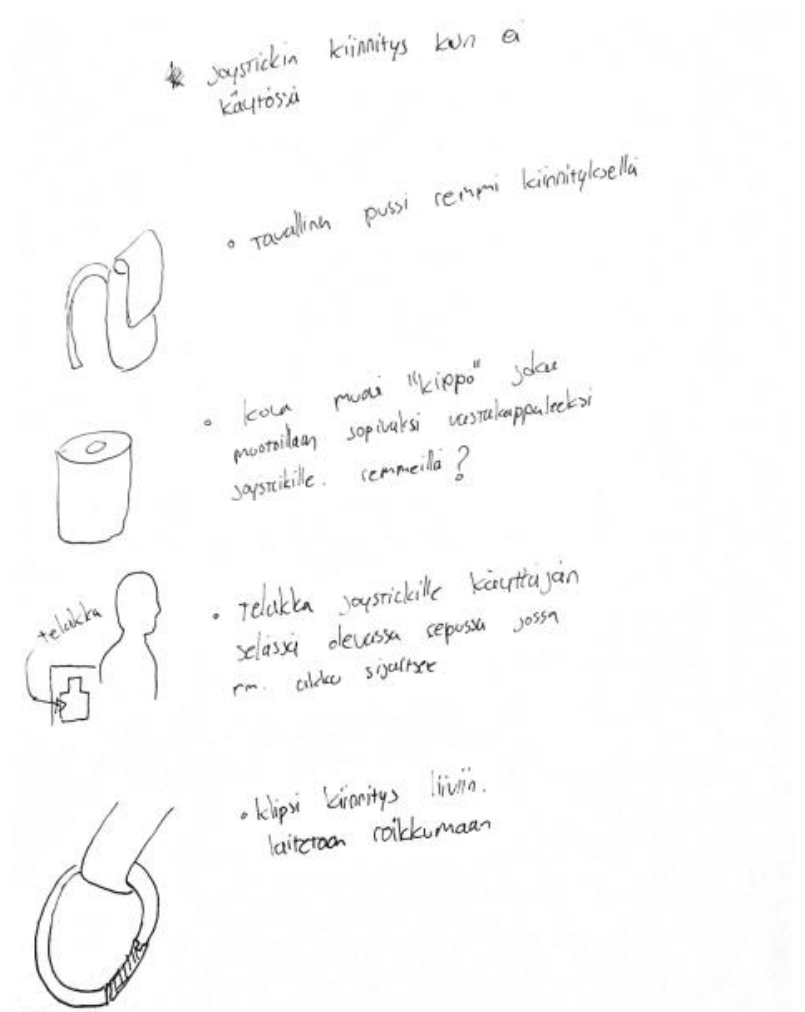 Joystickin kiinnitys kun ei
käytössä
• Tavallinen pussi remmi kiinnityksellä
• kova muovi "kippo" joka
muotoillaan sopivaksi vastakappaleeksi
joystickille. remmeillä?
telakka
• Telakka joystickille käyttäjän
selässä olevassa repussa jossa
mm. akku sijaitsee
• klipsi kiinnitys liiviin.
laitetaan roikkumaan